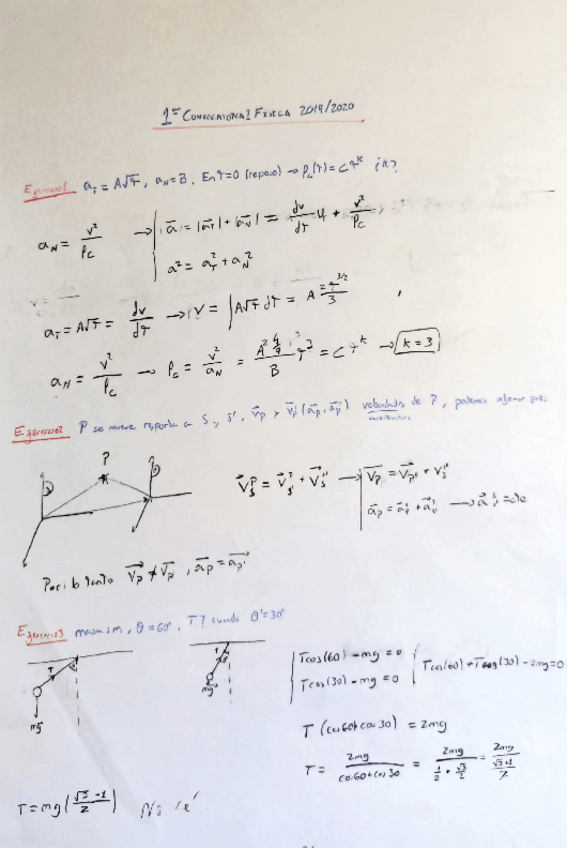 1ª CONVOCATORIA FÍSICA 2019/2020
Ejercicio1 a_T = A√t, a_N = B. En t=0 (reposo) → ρ_c(t) = C t^k ¿k?
a_N = v²/ρ_c → |a⃗| = |a⃗_T| + |a⃗_N| = dv/dt u_T + v²/ρ_c
a² = a_T² + a_N²
a_T = A√t = dv/dt → V = ∫A√t dt = A t^3/2 / 3
a_N = v²/ρ_c → ρ_c = v²/a_N = A² 4/9 t³ / B = C t^k → k = 3
Ejercicio2 P se mueve respecto a S y S'. v⃗_P y v⃗'_P (a⃗_P, a⃗'_P) velocidades de P, podemos afirmar
P
Por lo tanto v⃗_P ≠ v⃗_P' , a⃗_P = a⃗_P'
Ejercicio3 masa m, θ = 60°, T? cuando θ' = 30°
T
mg
T
mg
Tcos(60) - mg = 0
Tcos(30) - mg = 0
Tcos(60) + Tcos(30) - 2mg = 0
T (cos60 + cos30) = 2mg
T = 2mg / (cos60 + cos30) = 2mg / (1/2 + √3/2) = 2mg / ((√3+1)/2)
T = mg( (√3-1)/2 ) No sé